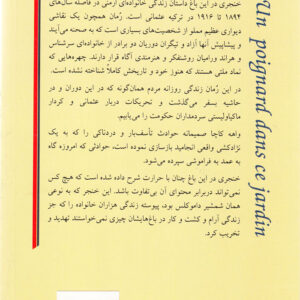 خنجری در این باغ داستان زندگی خانواده‌ای ارمنی در فاصله سال‌های
۱۸۹۴ تا ۱۹۱۶ در ترکیه عثمانی است. رمان همچون یک نقاشی
دیواری عظیم مملو از شخصیت‌های بسیاری است که به صحنه می‌آیند
و پیشاپیش آنها آزاد و تیگران دوریان دو برادر از خانواده‌ای سرشناس
و هراند وراميان روشنفکر و هنرمندی آگاه قرار دارند. چهره‌هایی که
نماد ملتی هستند که هنوز خود و تاریخش کاملاً شناخته نشده است.
در این رُمان زندگی روزانه مردم همان‌گونه که در این دوران و در
حاشیه بسفر می‌گذشت و تحریکات دربار عثمانی و کردار
ماکیاولیستی سردمداران حکومت را می‌یابیم.
واهه کاچا صمیمانه حوادث تأسف‌بار و دردناکی را که به یک
نژادکشی واقعی انجامید بازسازی نموده است، حوادثی که امروزه گاه
به عمد به فراموشی سپرده می‌شود.
خنجری در این باغ چنان با حرارت شرح داده شده است که هیچ کس
نمی‌تواند دربرابر محتوای آن بی‌تفاوت باشد. این خنجر که به نوعی
همان شمشیر داموکلس بود، پیوسته زندگی هزاران خانواده را که جز
زندگی آرام و کشت و کار در باغ‌هایشان چیزی نمی‌خواستند تهدید و
تخریب کرد.
Un poignard dans ce jardin